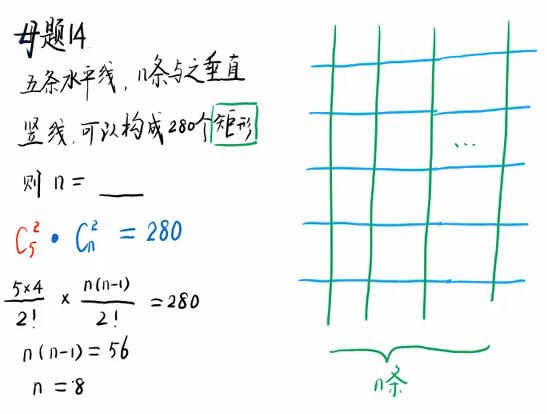 母题14
五条水平线，n条与之垂直
竖线，可以构成280个矩形
则 n = ___
C₅² · Cₙ² = 280
5×4/2! × n(n-1)/2! = 280
n(n-1) = 56
n = 8
...
n条